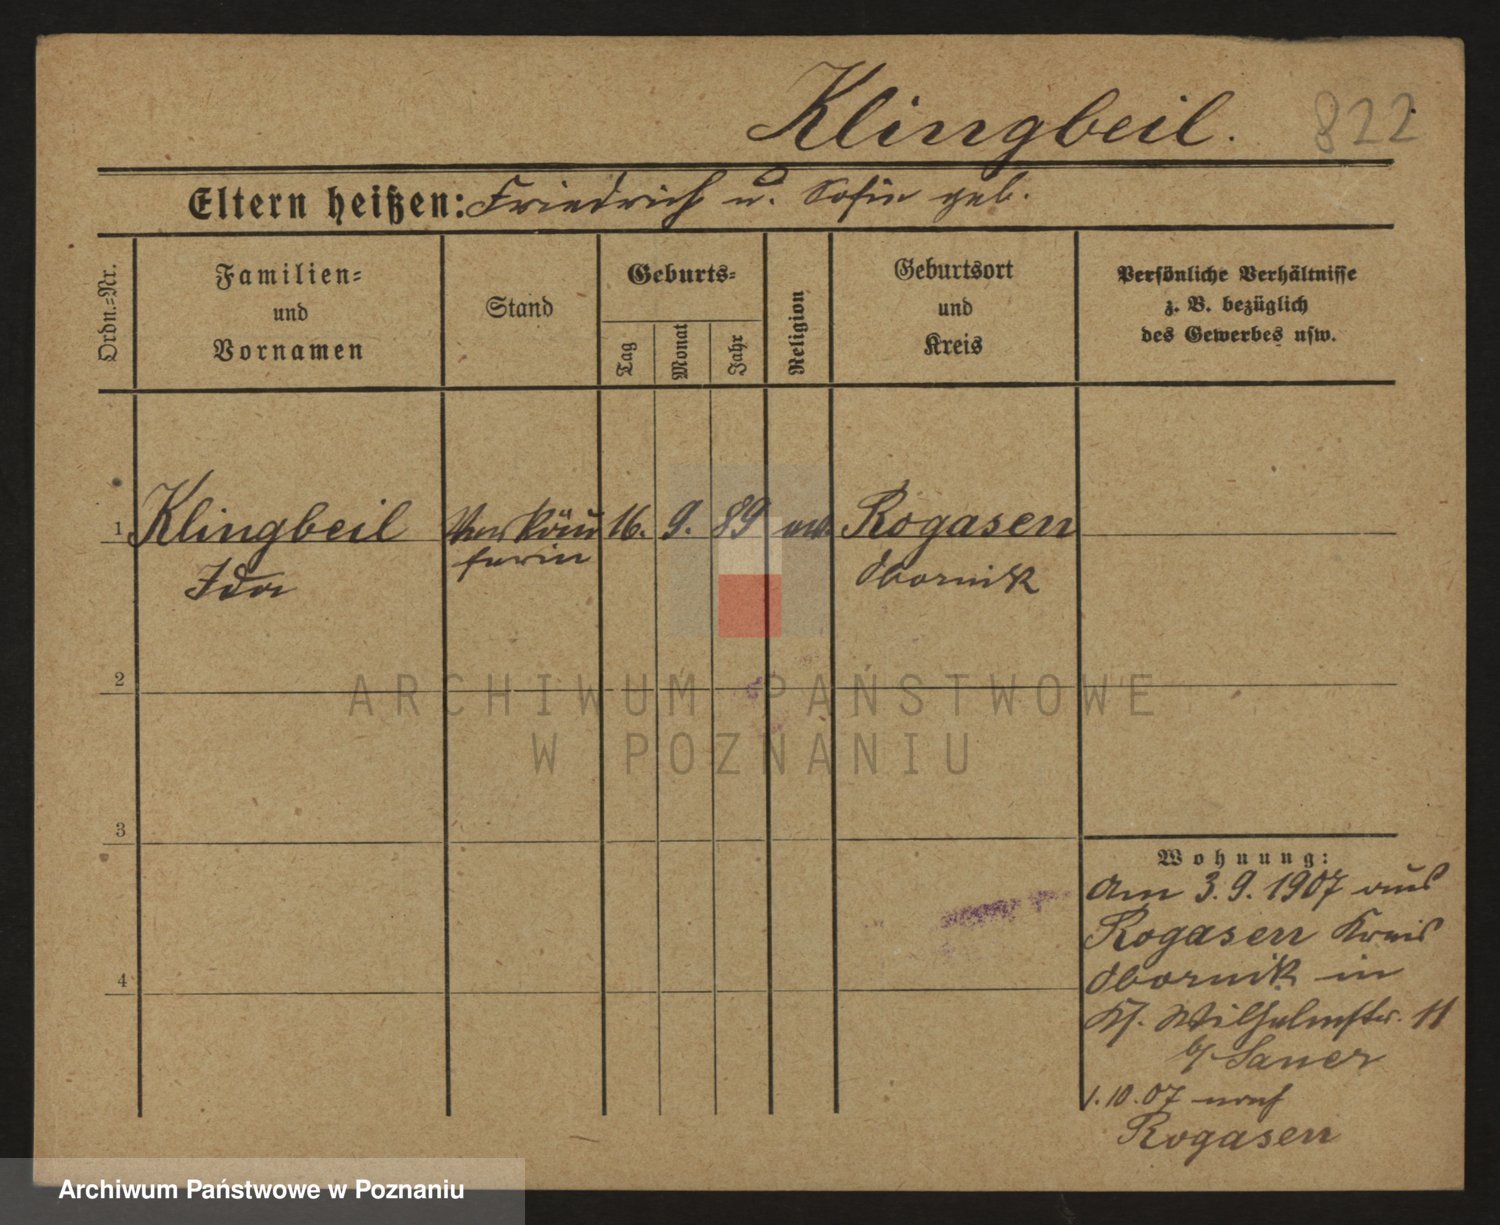 Klingbeil. 822
Eltern heißen: Friedrich u. Sofie geb.
Ordn.-Nr.
Familien-
und
Vornamen
Stand
Geburts-
Tag
Monat
Jahr
Religion
Geburtsort
und
Kreis
Persönliche Verhältnisse
z. B. bezüglich
des Gewerbes usw.
1 Klingbeil Verkäu 16. 9. 89 ev. Rogasen
Ida ferin Obornik
2
3
4
Wohnung:
Am 3.9.1907 aus
Rogasen Kreis
Obornik in
Wilhelmstr. 11
b/ Sauer
1.10.07 nach
Rogasen
ARCHIWUM PAŃSTWOWE
W POZNANIU
Archiwum Państwowe w Poznaniu